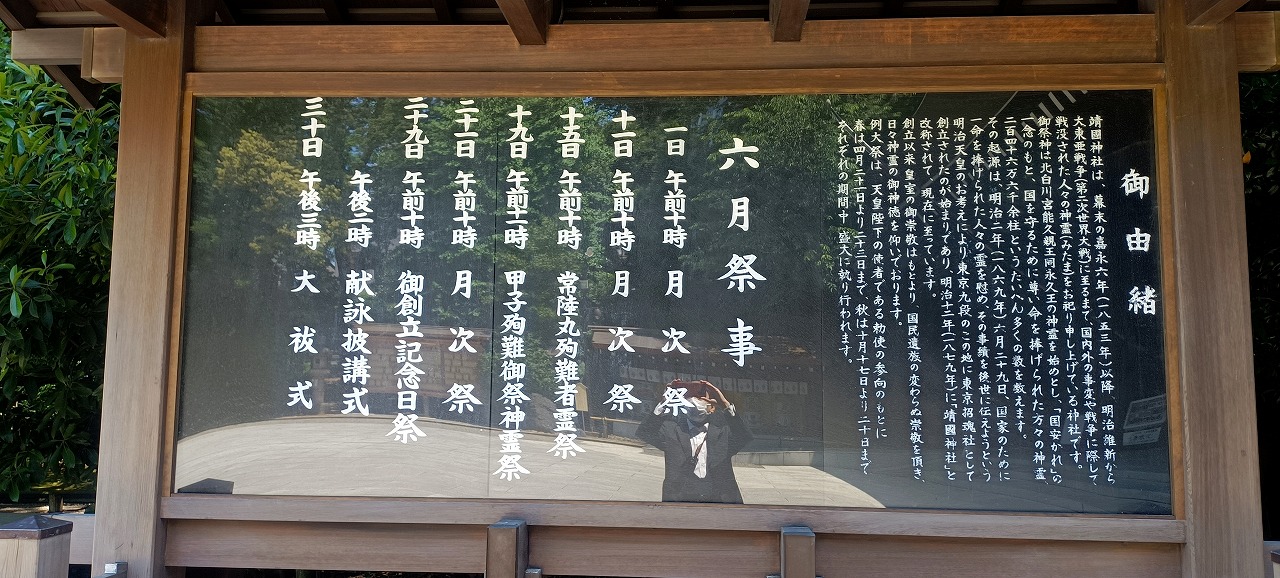 御由緒
靖國神社は、幕末の嘉永六年(一八五三年)以降、明治維新から
大東亜戦争(第二次世界大戦)に至るまで、国内外の事変や戦争に際して、
戦没された人々の神霊(みたま)をお祀り申し上げている神社です。
御祭神は北白川宮能久親王同永久王の神霊を始めとし、「国安かれ」の
一念のもと、国を守るために尊い命を捧げられた方々の神霊
二百四十六万六千余柱というたいへん多くの数を数えます。
その起源は、明治二年(一八六九年)六月二十九日、国家のために
一命を捧げられた人々の霊を慰め、その事績を後世に伝えようという
明治天皇のお考えにより、東京九段のこの地に東京招魂社として
創立されたのが始まりであり、明治十二年(一八七九年)に「靖國神社」と
改称されて、現在に至っています。
創立以来皇室の御崇敬はもとより、国民遺族の変わらぬ崇敬を頂き、
日々神霊の御神徳を仰いでおります。
例大祭は、天皇陛下の使者である勅使の参向のもとに
春は四月二十一日より二十三日まで、秋は十月十七日より二十日まで
それぞれの期間中、盛大に執り行われます。
六月祭事
一日 午前十時 月次祭
十一日 午前十時 月次祭
十五日 午前十時 常陸丸殉難者霊祭
十九日 午前十一時 甲子殉難御祭神霊祭
二十一日 午前十時 月次祭
二十九日 午前十時 御創立記念日祭
午後二時 献詠披講式
三十日 午後三時 大祓式